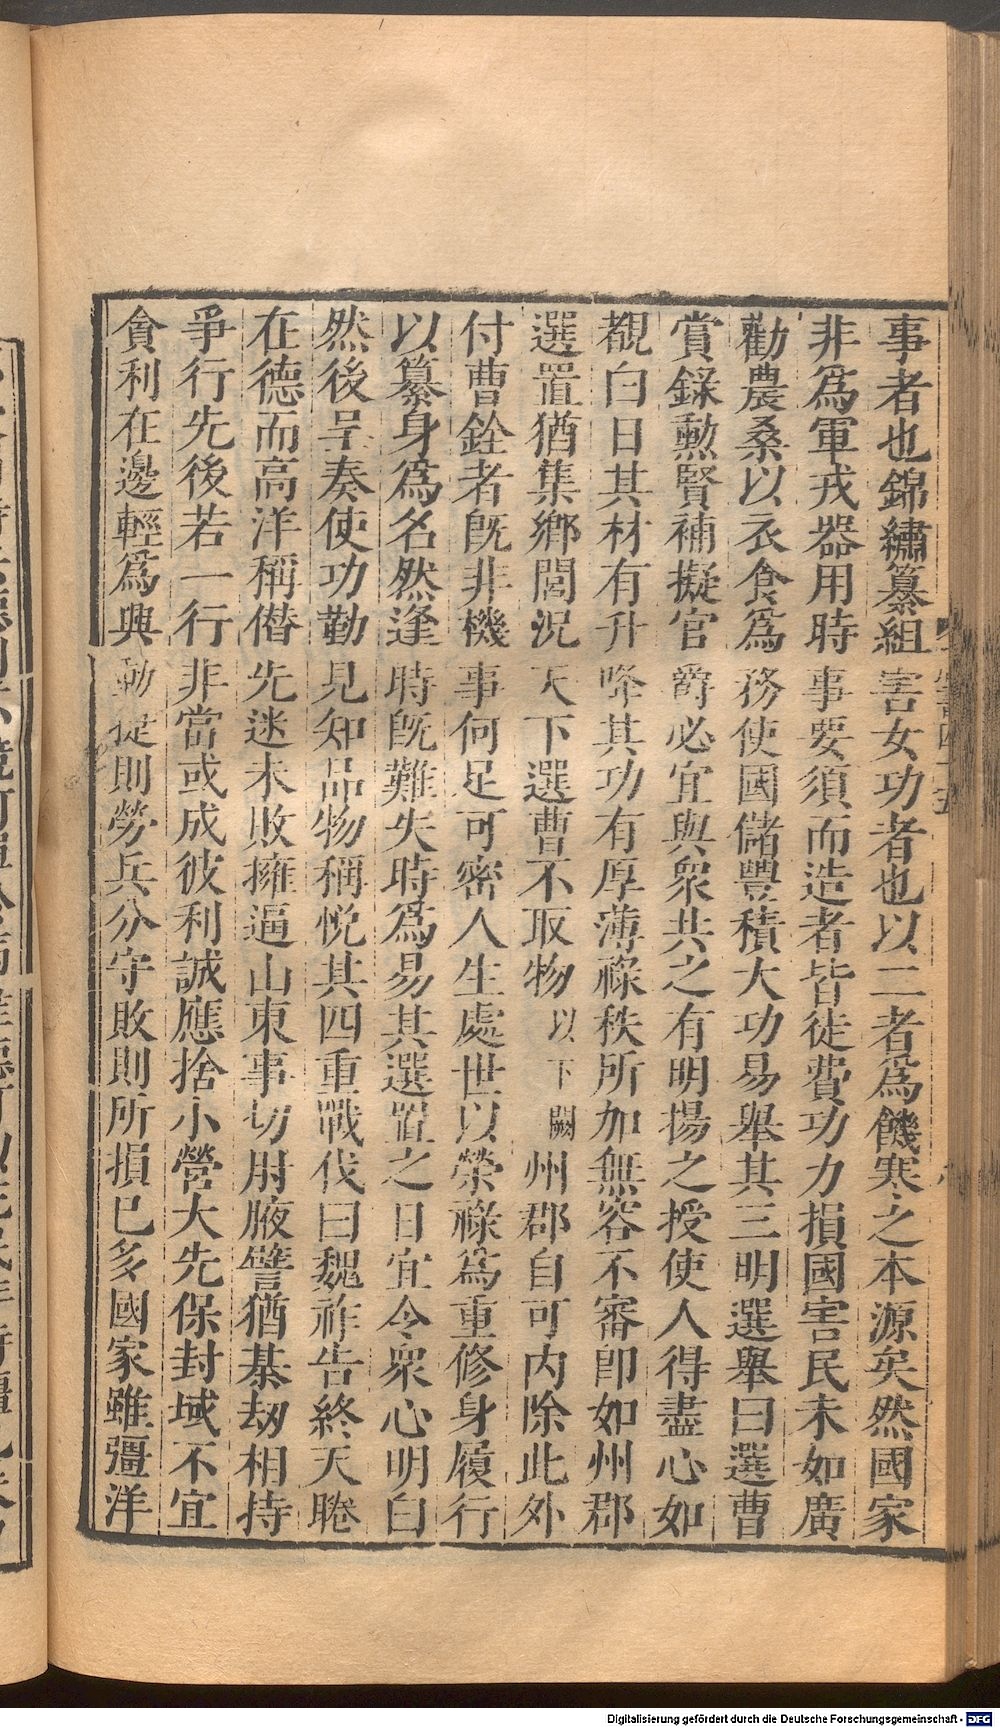 事者也錦繡纂組害女功者也以二者爲饑寒之本源矣然國家
非爲軍戎器用時事要須而造者皆徒費功力損國害民未如廣
勸農桑以衣食爲務使國儲豐積大功易舉其三明選舉曰選曹
賞錄勲賢補擬官爵必宜與衆共之有明揚之授使人得盡心如
覩白日其材有升降其功有厚薄祿秩所加無容不審即如州郡
選置猶集鄉閭況天下選曹不取物以下闕州郡自可内除此外
付曹銓者旣非機事何足可密人生處世以榮祿爲重修身履行
以纂身爲名然逢時旣難失時爲易其選置之日宜令衆心明白
然後呈奏使功勤見知品物稱悅其四重戰伐曰魏祚告終天睠
在德而高洋稱僭先迷未敗擁逼山東事切肘腋譬猶棊劫相持
爭行先後若一行非當或成彼利誠應捨小營大先保封域不宜
貪利在邊輕爲興動捉則勞兵分守敗則所損已多國家雖彊洋
Digitalisierung gefördert durch die Deutsche Forschungsgemeinschaft - DFG